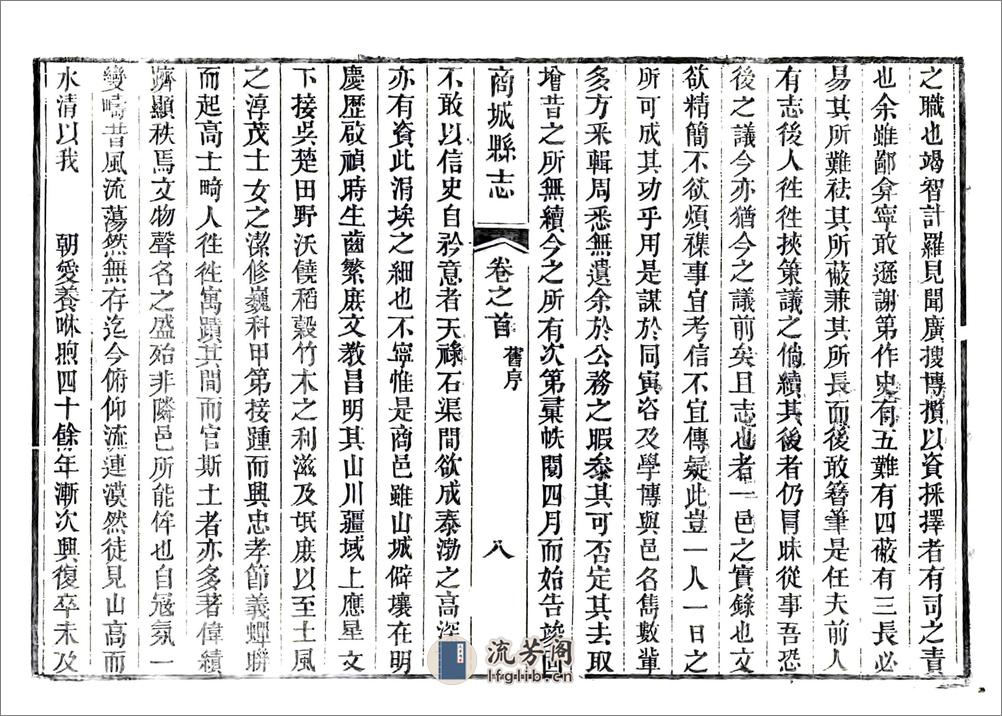 之職也竭智計羅見聞廣搜博攬以資採擇者有司之責
也余雖鄙弇寧敢遜謝第作史有五難有四蔽有三長必
易其所難祛其所蔽兼其所長而後敢簪筆是任夫前人
有志後人徃徃挾策議之倘續其後者仍冐昧從事吾恐
後之議今亦猶今之議前矣且志也者一邑之實錄也文
欲精簡不欲煩襍事宜考信不宜傳疑此豈一人一日之
所可成其功乎用是謀於同寅咨及學博與邑名雋數輩
多方采輯周悉無遺余於公務之暇叅其可否定其去取
增昔之所無續今之所有次第彚帙閱四月而始告竣
商城縣志 卷之首 舊序 八
不敢以信史自矜意者天祿石渠間欲成泰渤之高深
亦有資此涓埃之細也不寧惟是商邑雖山城僻壤在明
慶歷啟禎時生齒繁庶文教昌明其山川疆域上應星文
下接吳楚田野沃饒稻穀竹木之利滋及氓庶以至土風
之淳茂士女之潔修巍科甲第接踵而興忠孝節義蟬聯
而起高士畸人徃徃寓蹟其間而官斯土者亦多著偉績
躋顯秩焉文物聲名之盛始非隣邑所能侔也自冦氛一
變疇昔風流蕩然無存迄今俯仰流連漠然徒見山高而
水清以我 朝愛養咻煦四十餘年漸次興復卒未及
流芳阁
lfglib.cn